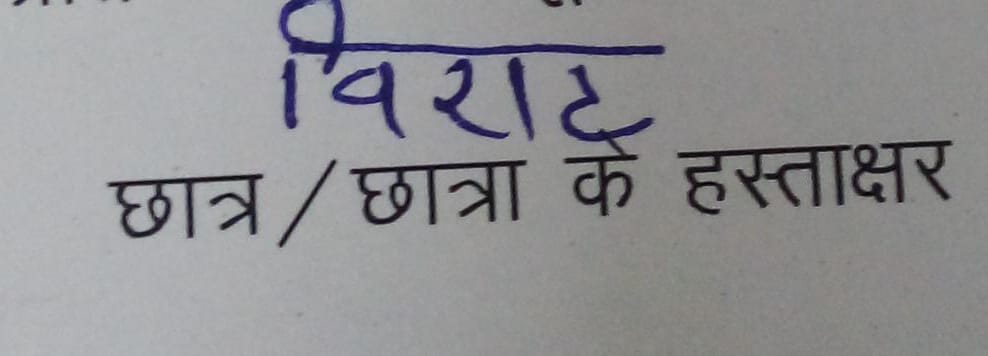 विराट
छात्र / छात्रा के हस्ताक्षर